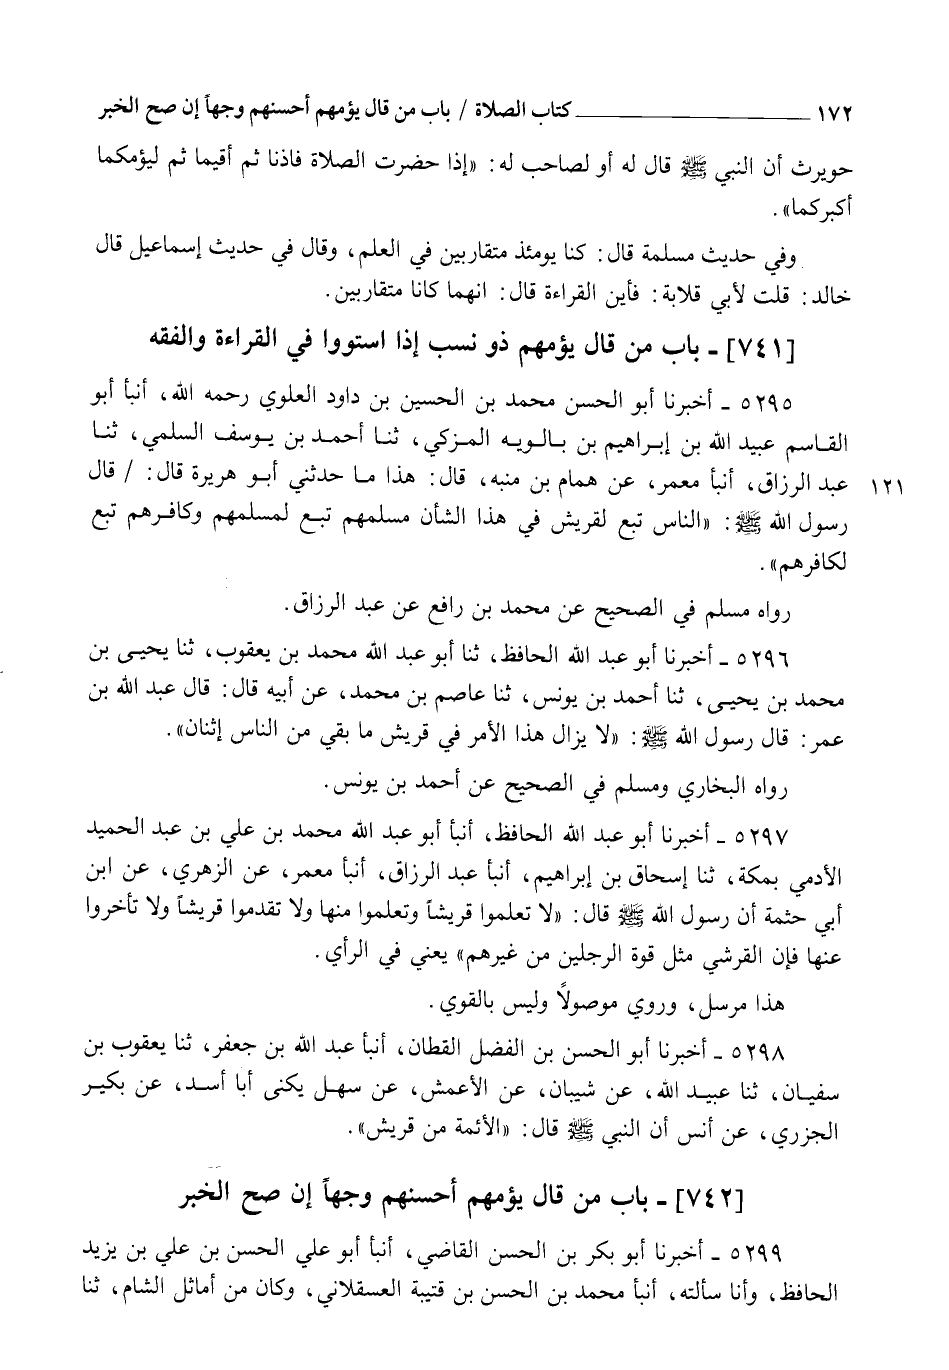 ١٧٢ ـــــــــــــــــــــــــــ كتاب الصلاة / باب من قال يؤمهم أحسنهم وجهاً إن صح الخبر
حويرث أن النبي ﷺ قال له أو لصاحب له: «إذا حضرت الصلاة فاذنا ثم أقيما ثم ليؤمكما
أكبركما».
وفي حديث مسلمة قال: كنا يومئذ متقاربين في العلم، وقال في حديث إسماعيل قال
خالد: قلت لأبي قلابة: فأين القراءة قال: انهما كانا متقاربين.
[٧٤١] ـ باب من قال يؤمهم ذو نسب إذا استووا في القراءة والفقه
٥٢٩٥ ـ أخبرنا أبو الحسن محمد بن الحسين بن داود العلوي رحمه الله، أنبأ أبو
القاسم عبيد الله بن إبراهيم بن بالويه المزكي، ثنا أحمد بن يوسف السلمي، ثنا
١٢١ عبد الرزاق، أنبأ معمر، عن همام بن منبه، قال: هذا ما حدثني أبو هريرة قال: / قال
رسول الله ﷺ: «الناس تبع لقريش في هذا الشأن مسلمهم تبع لمسلمهم وكافرهم تبع
لكافرهم».
رواه مسلم في الصحيح عن محمد بن رافع عن عبد الرزاق.
٥٢٩٦ ـ أخبرنا أبو عبد الله الحافظ، ثنا أبو عبد الله محمد بن يعقوب، ثنا يحيى بن
محمد بن يحيى، ثنا أحمد بن يونس، ثنا عاصم بن محمد، عن أبيه قال: قال عبد الله بن
عمر: قال رسول الله ﷺ: «لا يزال هذا الأمر في قريش ما بقي من الناس إثنان».
رواه البخاري ومسلم في الصحيح عن أحمد بن يونس.
٥٢٩٧ ـ أخبرنا أبو عبد الله الحافظ، أنبأ أبو عبد الله محمد بن علي بن عبد الحميد
الأدمي بمكة، ثنا إسحاق بن إبراهيم، أنبأ عبد الرزاق، أنبأ معمر، عن الزهري، عن ابن
أبي حثمة أن رسول الله ﷺ قال: «لا تعلموا قريشاً وتعلموا منها ولا تقدموا قريشاً ولا تأخروا
عنها فإن القرشي مثل قوة الرجلين من غيرهم» يعني في الرأي.
هذا مرسل، وروي موصولاً وليس بالقوي.
٥٢٩٨ ـ أخبرنا أبو الحسن بن الفضل القطان، أنبأ عبد الله بن جعفر، ثنا يعقوب بن
سفيان، ثنا عبيد الله، عن شيبان، عن الأعمش، عن سهل يكنى أبا أسد، عن بكير
الجزري، عن أنس أن النبي ﷺ قال: «الأئمة من قريش».
[٧٤٢] ـ باب من قال يؤمهم أحسنهم وجهاً إن صح الخبر
٥٢٩٩ ـ أخبرنا أبو بكر بن الحسن القاضي، أنبأ أبو علي الحسن بن علي بن يزيد
الحافظ، وأنا سألته، أنبأ محمد بن الحسن بن قتيبة العسقلاني، وكان من أماثل الشام، ثنا